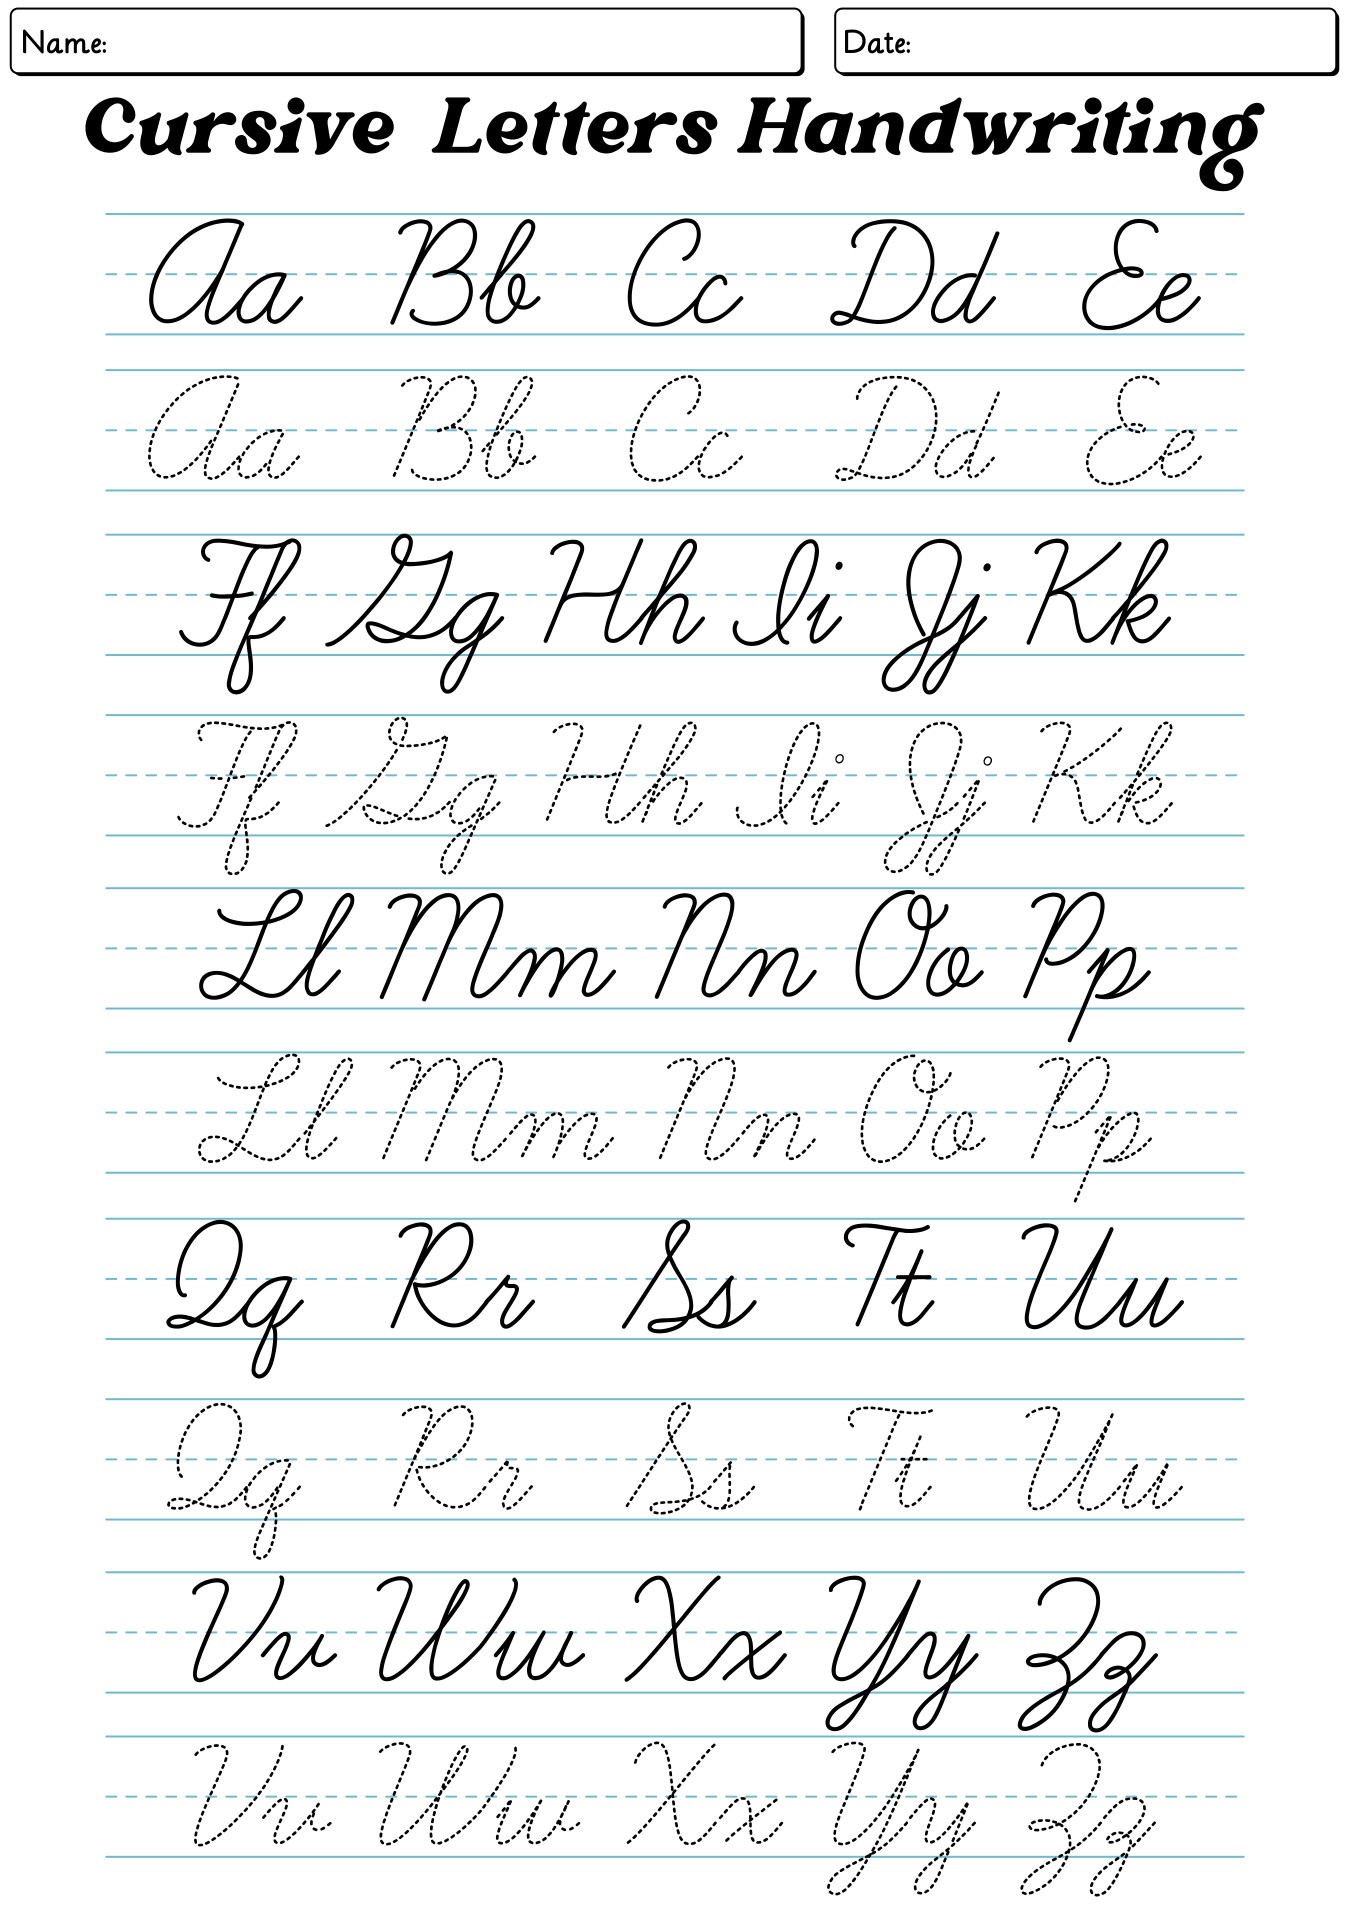 Name: Date:
Cursive Letters Handwriting
Aa Bb Cc Dd Ee
Aa Bb Cc Dd Ee
Ff Gg Hh Ii Jj Kk
Ff Gg Hh Ii Jj Kk
Ll Mm Nn Oo Pp
Ll Mm Nn Oo Pp
Qq Rr Ss Tt Uu
Qq Rr Ss Tt Uu
Vv Ww Xx Yy Zz
Vv Ww Xx Yy Zz